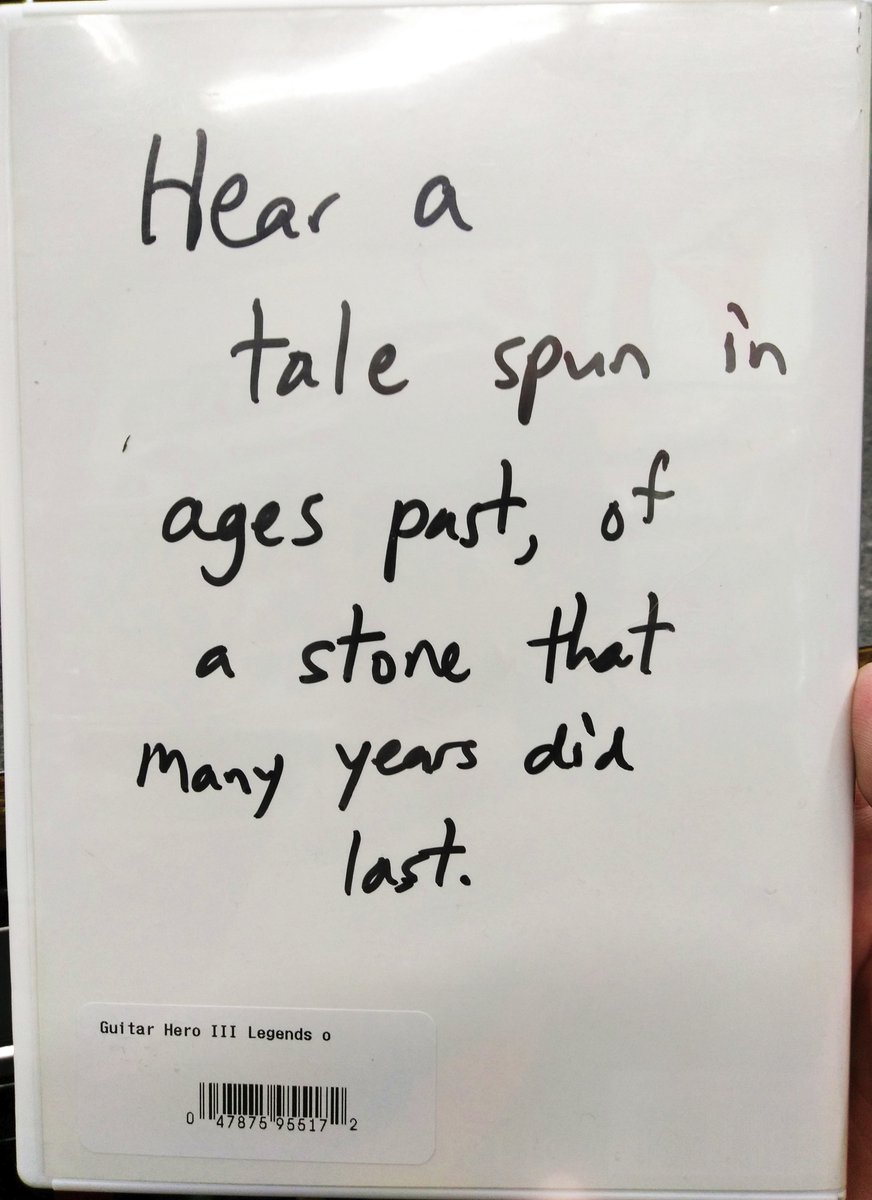 Hear a
tale spun in
ages past, of
a stone that
many years did
last.
Guitar Hero III Legends o
0 47875 95517 2